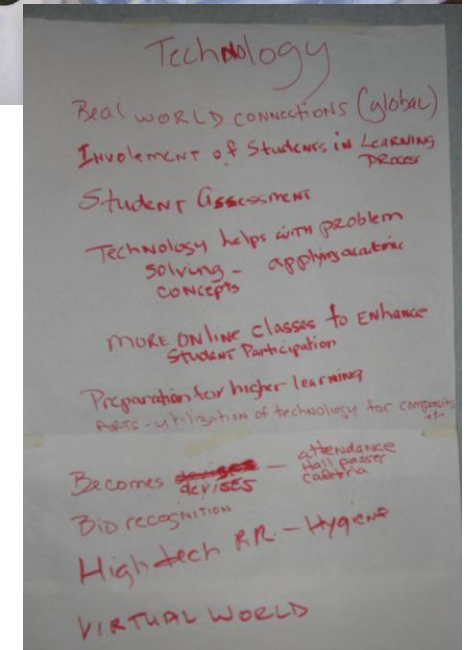 Technology
Real WORLD CONNECTIONS (global)
INvolement of Students in LEARNING
PROCESS
Student Assessment
Technology helps with problem
solving - applying academic
concepts
MORE ONLINE classes to ENHANCE
STUDENT Participation
Preparation for higher learning
ARTS - utilization of technology for
Becomes devises - attendance
Hall passes
cafeteria
Bio recognition
High tech RR - Hygiene
VIRTUAL WORLD